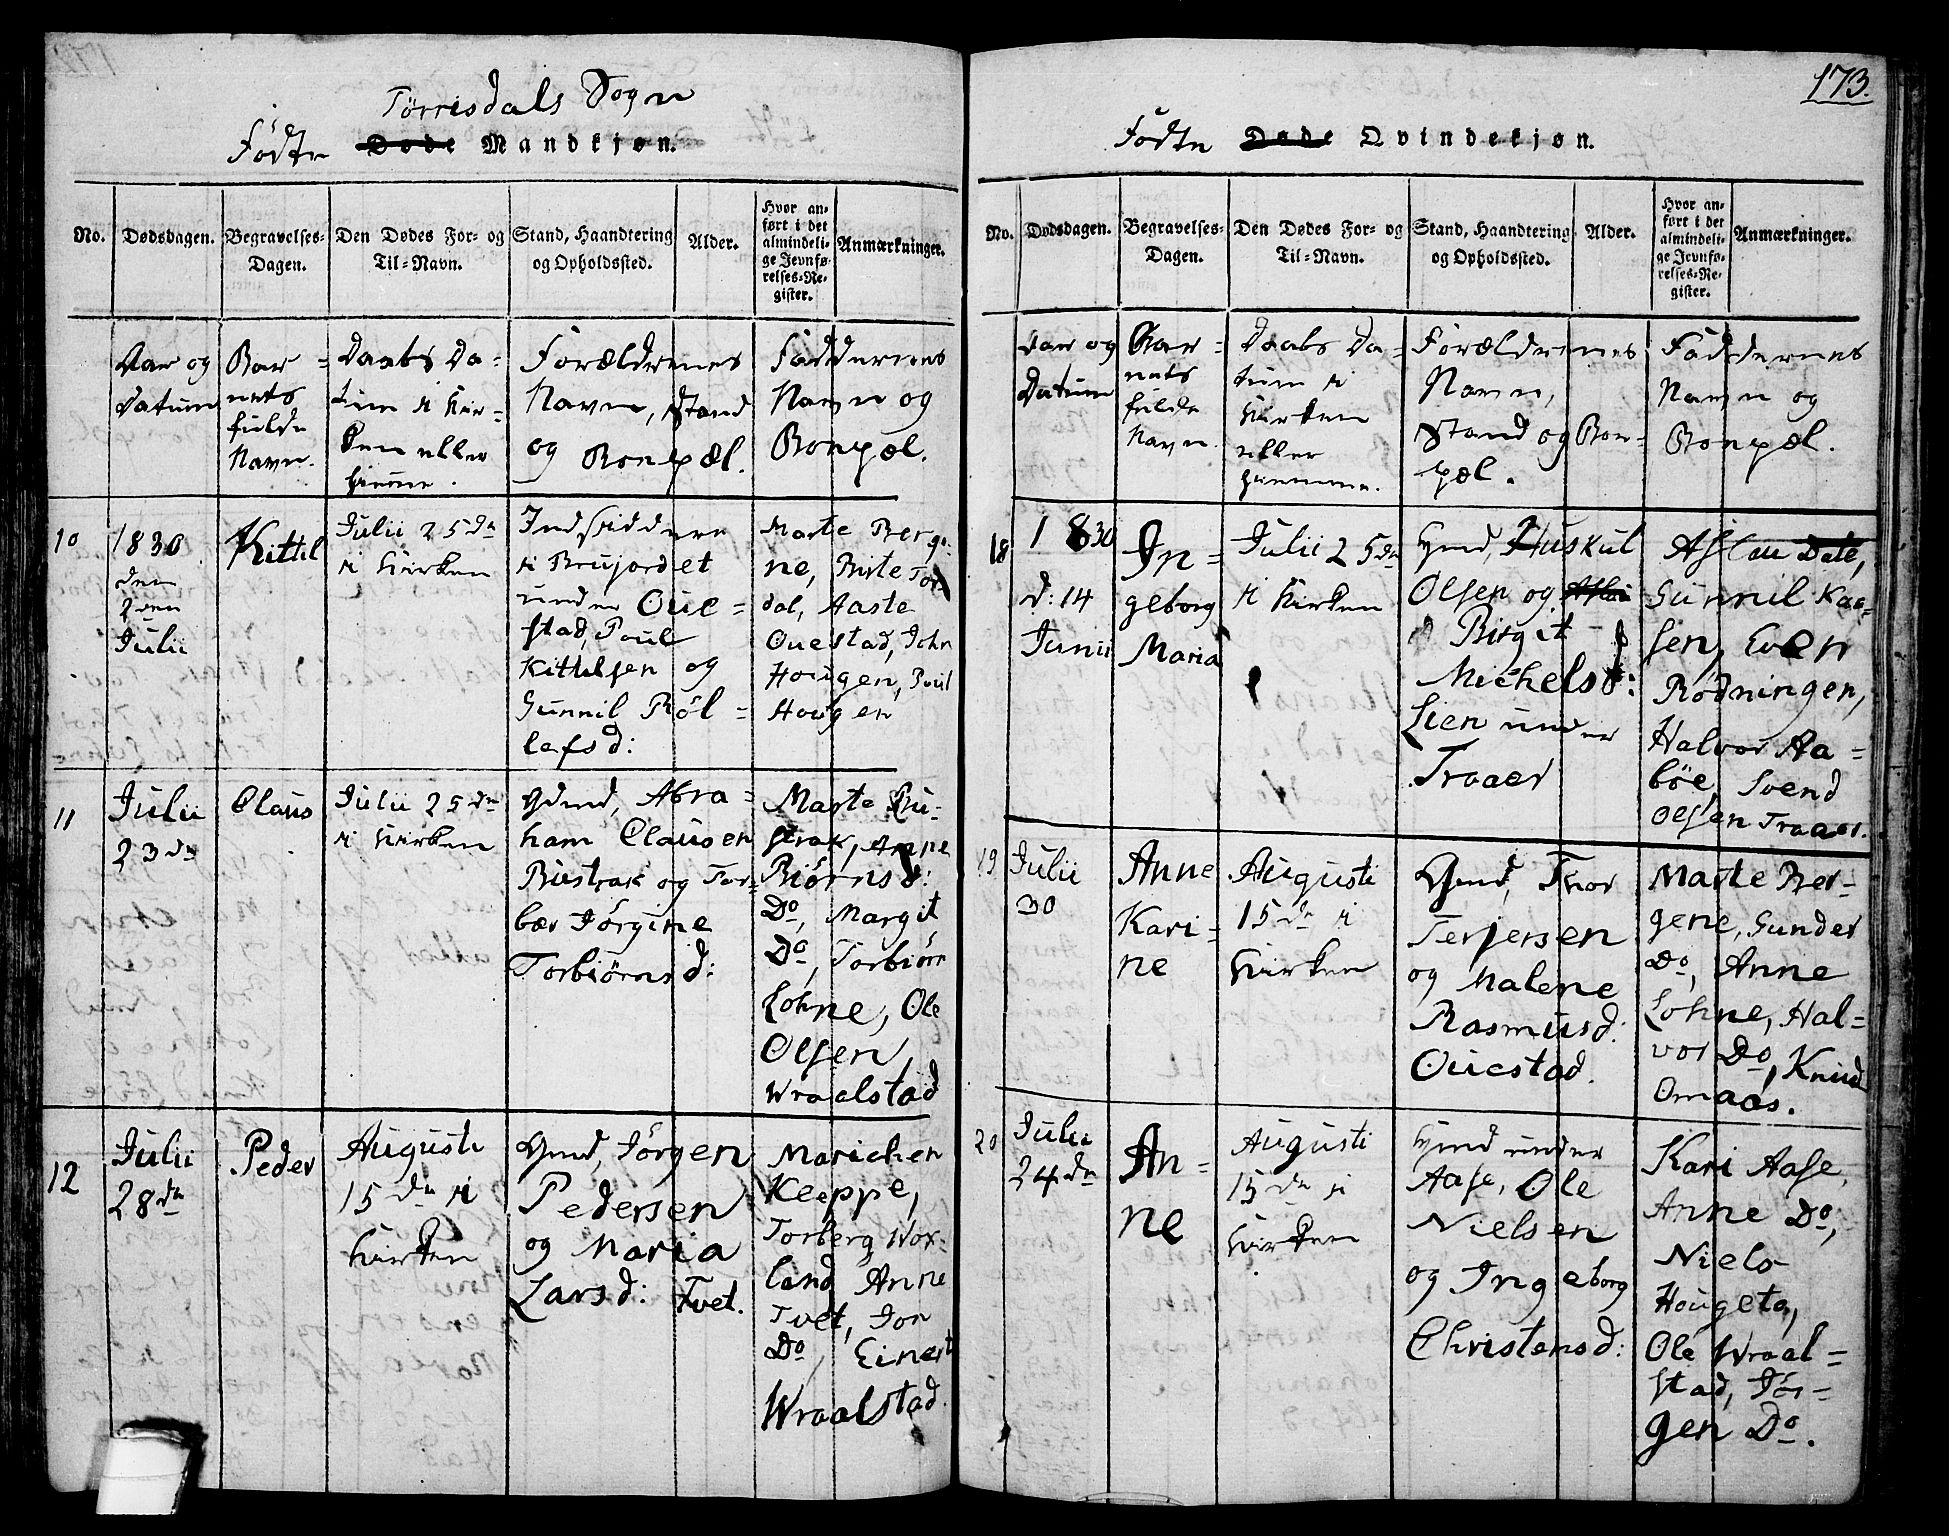 173.
Tørrisdals Sogn
Fødte Døde Mandkjøn.
No.
Dødsdagen.
Begravelses-
Dagen.
Den Dødes For- og
Til-Navn.
Stand, Haandtering
og Opholdssted.
Alder.
Hvor an-
ført i det
almindeli-
ge Jevnfø-
relses-Re-
gister.
Anmærkninger.
Aar og
Datum
Bar-
nets
fulde
Navn.
Daabs Da-
tum i Kir-
ken eller
hiemme.
Forældrenes
Navn, Stand
og Bopæl.
Faddernes
Navn og
Bopæl.
10
1830
den
2den
Julii
Kittil
Julii 25de
i Kirken
Indsiddere
i Brujordet
under Oue-
stad, Poul
Kittilsen og
Gunnil Röl-
lefsd:
Marte Berge-
ne, Birte Tor
dal, Aaste
Ouestad, John
Hougen, Poul
Hougen
11
Julii
23de
Claus
Julii 25de
i Kirken
Gmd, Abra-
ham Clausen
Bustrak og Tor-
bør Jörgine
Torbiörnsd:
Marte Bu-
strak, Anne
Biörnsd:
Do, Margit
Do, Torbiörn
Lohne, Ole
Olsen
Wraalstad
12
Julii
28de
Peder
Augusti
15de i
Kirken
Gmd, Jörgen
Pedersen
og Maria
Larsd: Tvet.
Marichen
Keeppe,
Torberg Wox-
land, Anne
Tvet, Jon
Do, Einert
Wraalstad
Fødte Døde Qvindekjøn.
No.
Dødsdagen.
Begravelses-
Dagen.
Den Dødes For- og
Til-Navn.
Stand, Haandtering
og Opholdssted.
Alder.
Hvor an-
ført i det
almindeli-
ge Jevnfø-
relses-Re-
gister.
Anmærkninger.
Aar og
Datum
Bar-
nets
fulde
Navn.
Daabs Da-
tum i
Kirken
eller
hiemme.
Forældrenes
Navn,
Stand og Bo-
pæl.
Faddernes
Navn og
Bopæl.
18
1830
d: 14
Junii
In-
geborg
Maria
Julii 25de
i Kirken
Hmd, Huskul
Olsen og
Birgit
Michelsd:
Lien under
Traaer
Aslau Dale,
Gunnil Kaa-
sen, Even
Rödningen,
Halvor Aa-
böe, Svend
Olsen Traaer.
19
Julii
30
Anne
Kari-
ne
Augusti
15de i
Kirken
Gmd, Thor
Terjersen
og Malene
Rasmusd:
Ouestad.
Marte Ber-
gene, Gunder
Do, Anne
Lohne, Hal-
vor Do, Knud
Omaas.
20
Julii
24de
An-
ne
Augusti
15de i
Kirken
Hmd under
Aase, Ole
Nielsen
og Ingeborg
Christensd:
Kari Aase,
Anne Do,
Niels
Hougeto,
Ole Wraal-
stad, Jör-
gen Do.